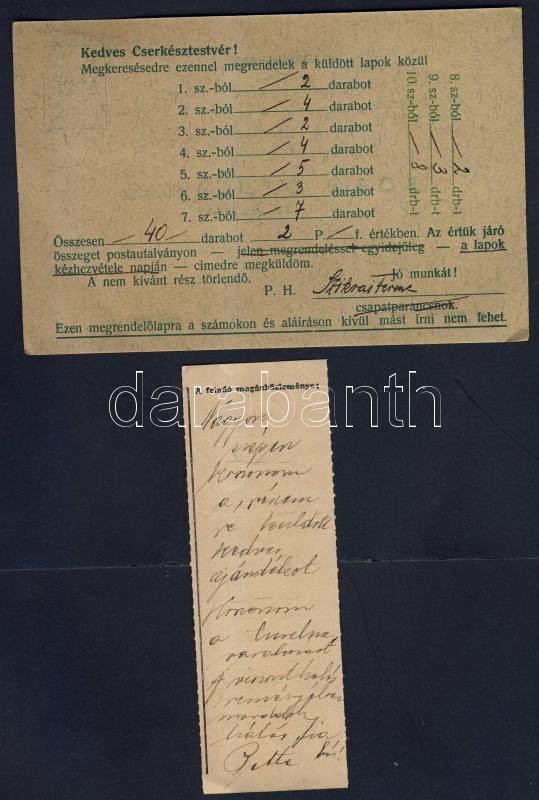 Kedves Cserkésztestvér!
Megkeresésedre ezennel megrendelek a küldött lapok közül
1. sz.-ból 2 darabot
2. sz.-ból 4 darabot
3. sz.-ból 2 darabot
4. sz.-ból 4 darabot
5. sz.-ból 5 darabot
6. sz.-ból 3 darabot
7. sz.-ból 7 darabot
8. sz.-ból 2 drb-t
9. sz.-ból 3 drb-t
10. sz-ból 8 drb-t
Összesen 40 darabot 2 P — f. értékben. Az értük járó
összeget postautalványon — jelen megrendeléssel egyidejűleg — a lapok
kézhezvétele napján — címedre megküldöm.
A nem kívánt rész törlendő.
Jó munkát!
P. H.
csapatparancsnok.
Ezen megrendelőlapra a számokon és aláíráson kívül mást írni nem lehet.
darabanth
A feladó magánközleménye:
Nagyon
szépen
köszönöm
a
kedves
ajándékot
Köszönöm
a
hálás fia